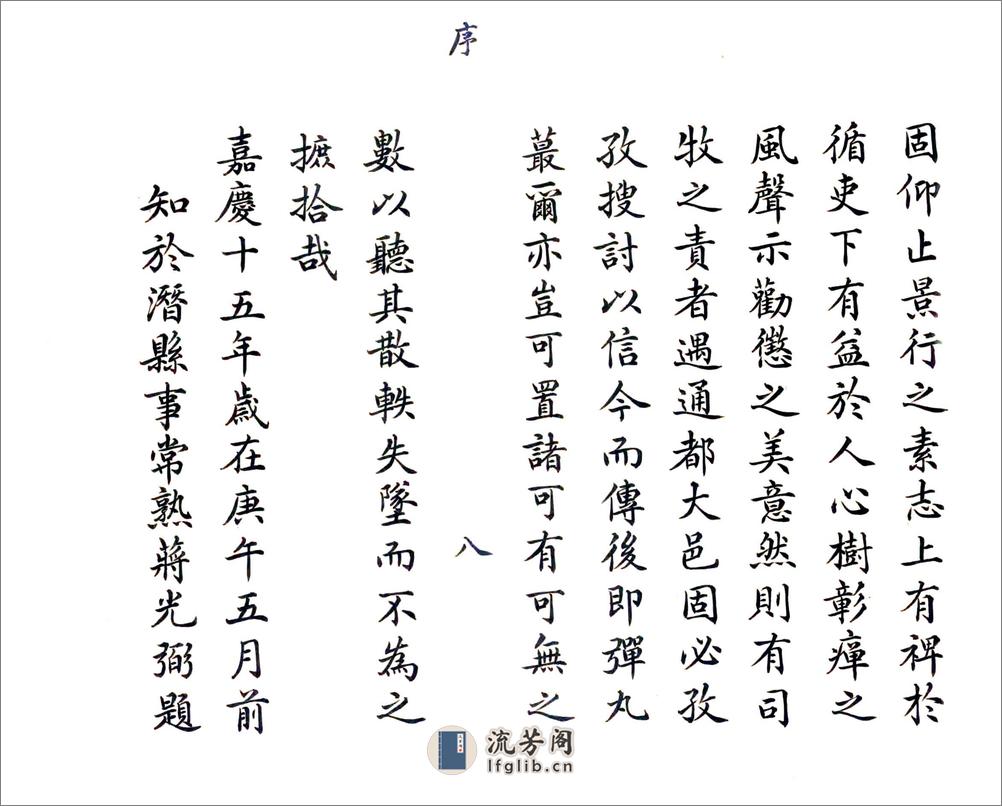 固仰止景行之素志上有裨於
循吏下有益於人心樹彰癉之
風聲示勸懲之美意然則有司
牧之責者遇通都大邑固必孜
孜搜討以信今而傳後即彈丸
蕞爾亦豈可置諸可有可無之
序
八
數以聽其散軼失墜而不為之
摭拾哉
嘉慶十五年歲在庚午五月前
知於潛縣事常熟蔣光弼題
流芳阁
lfglib.cn